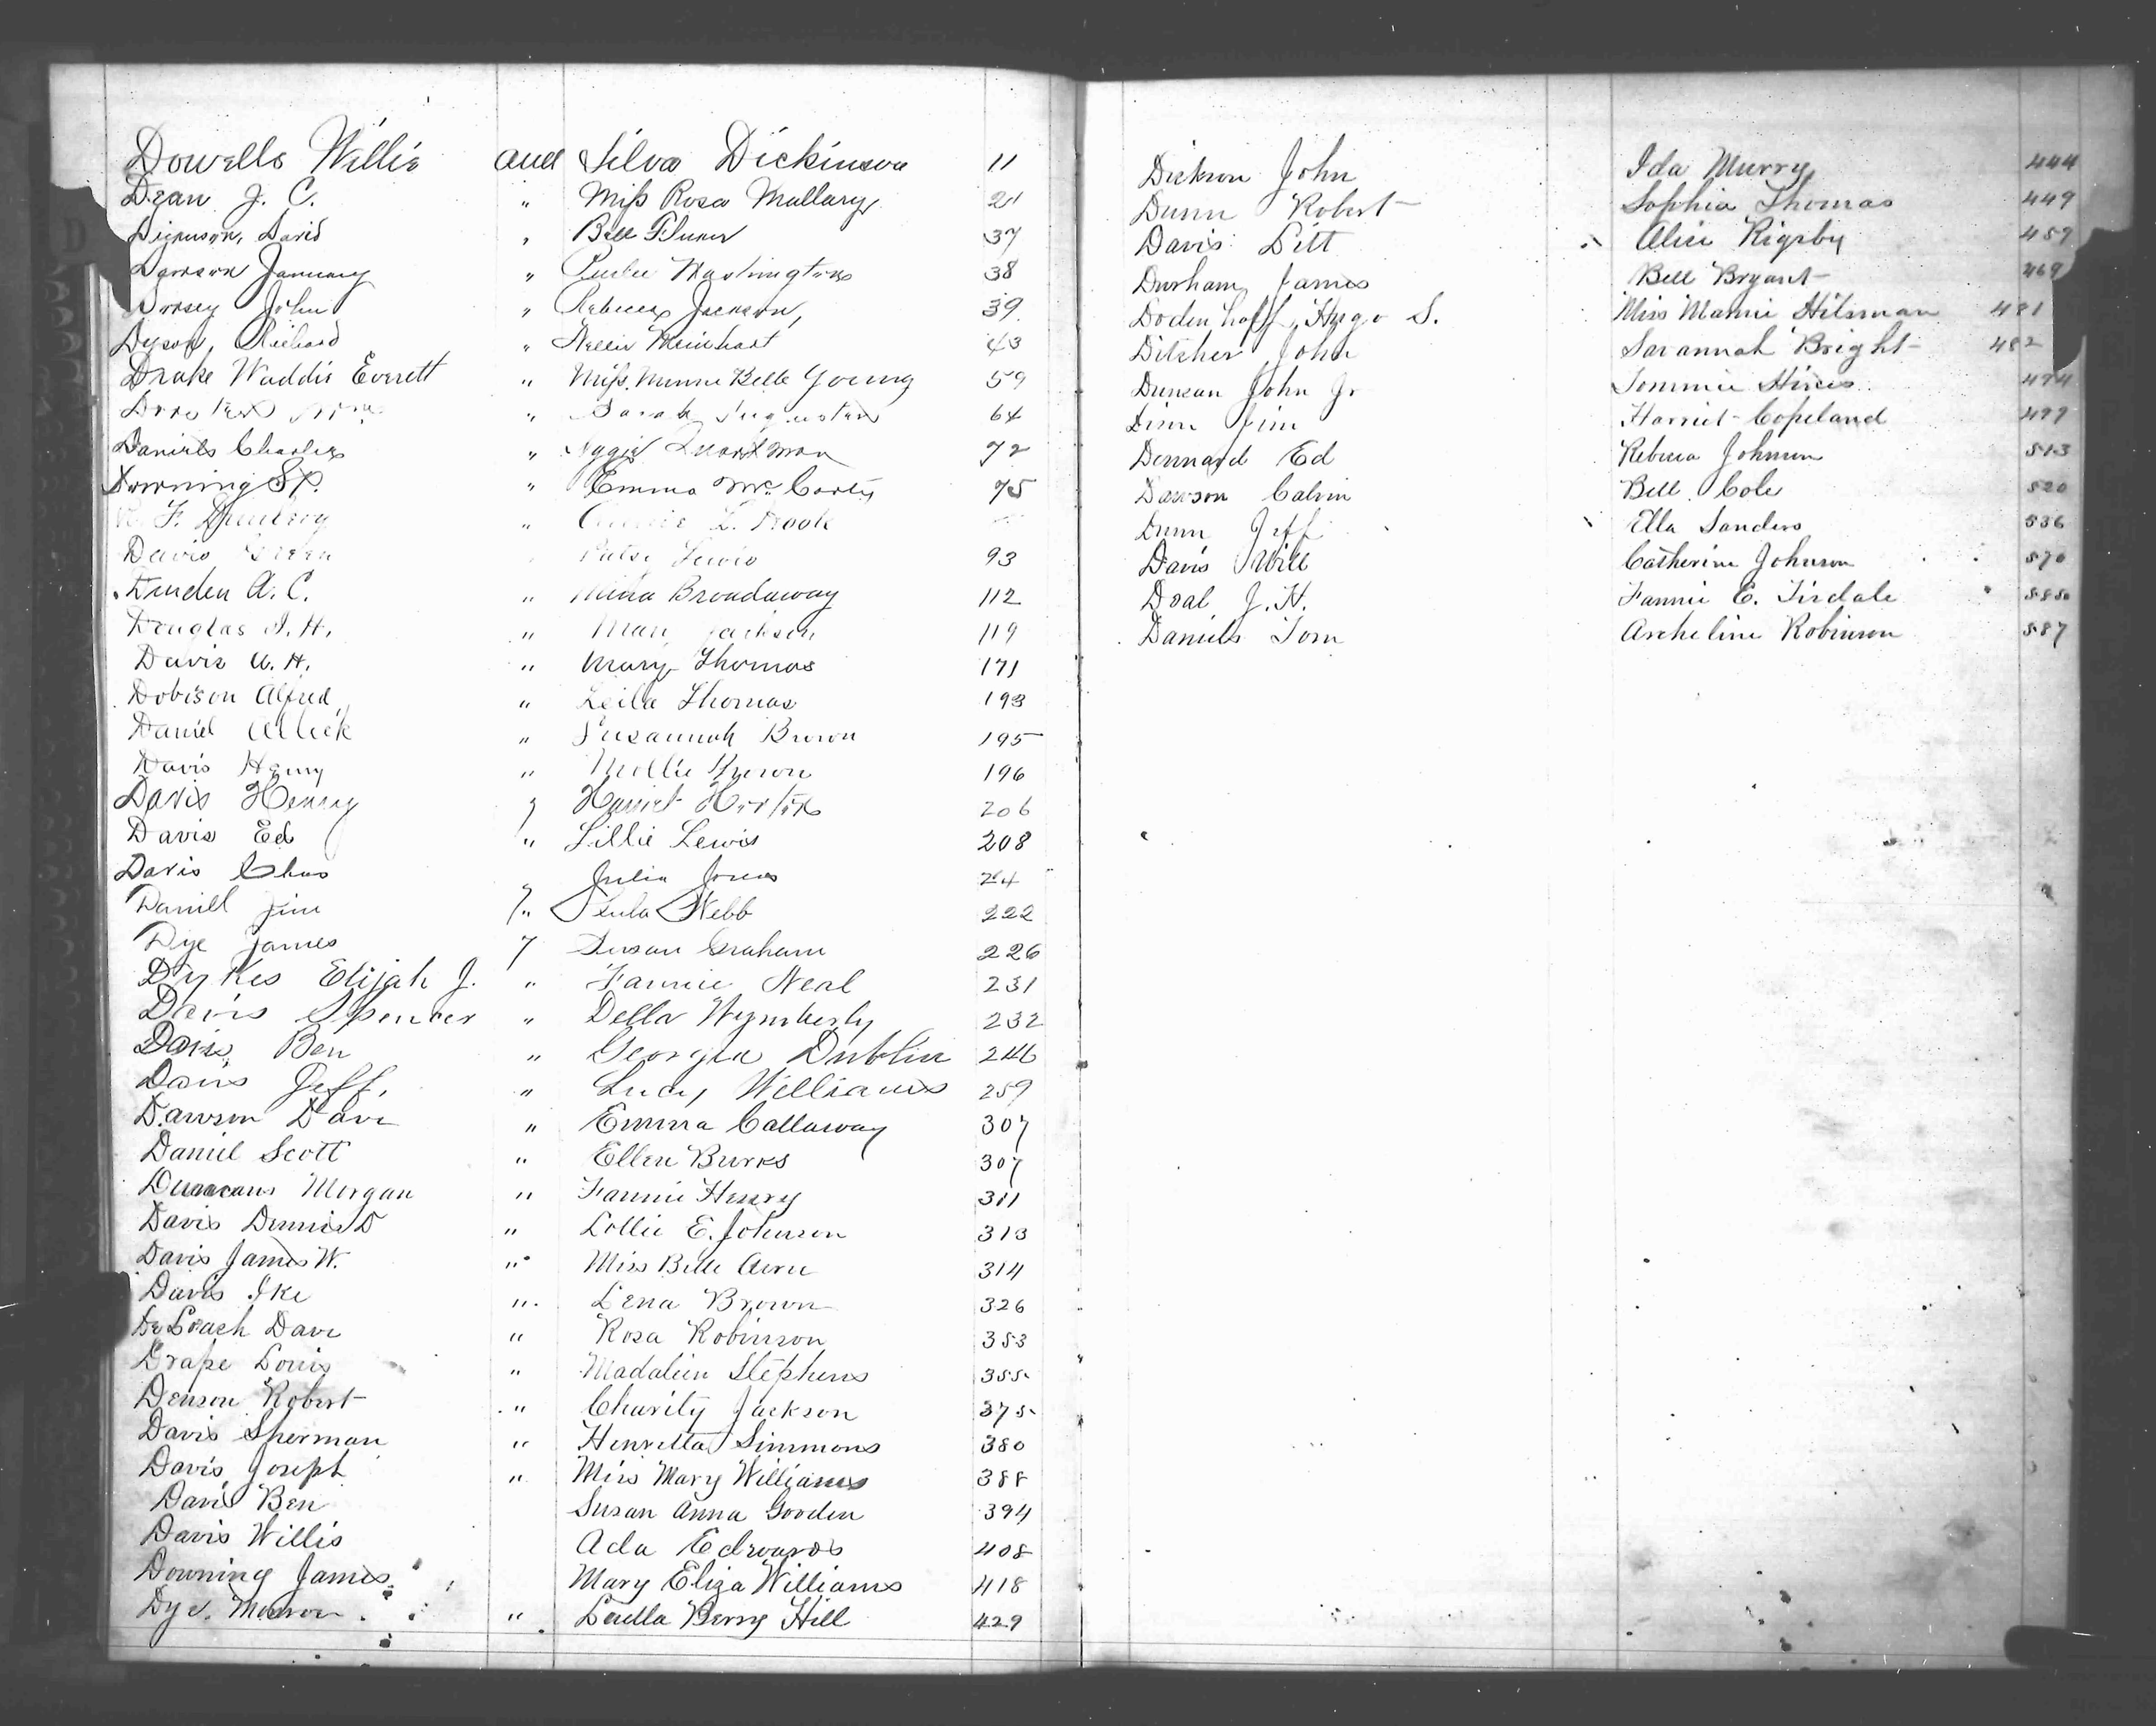 Dowells Willie and Silva Dickinson 11
Dean J. C. " Miss Rosa Mallary 21
Dickinson, David " Bell Fluker 37
Dawson January " Washington 38
Dorsey John " Rebecca Jackson, 39
Dyson, Richard " Nellie Meinhart 43
Drake Waddis Everett " Miss. Minnie Belle Young 59
" Sarah 64
Daniels Charles " Aggie Quartman 72
Downing S P. " Emma McCarty 75
F. "
Davis Green Patsy Lewis 93
Dinden A. C. " Broadaway 112
Douglas J. H. " Mary Jackson 119
Davis A. H. " Mary Thomas 171
Dobison Alfred " Leila Thomas 193
Daniel Alleck " Susannah Brown 195
Davis Henry " Mollie 196
Davis Henry " Harriet 206
Davis Ed " Lillie Lewis 208
Davis Chas Julia Jones
Daniel Jim " Lula Webb 222
Dye James " Susan Graham 226
Dykes Elijah J. " Fannie Neal 231
Davis Spencer " Della Wymberly 232
Davis Ben " Georgia Dublin 246
Davis Jeff. " Lucy Williams 259
Dawson Dave " Emma Callaway 307
Daniel Scott " Ellen Burks 307
Duncans Morgan " Fannie Henry 311
Davis Dennis D " Lollie E. Johnson 313
Davis James W. " Miss Belle 314
Davis Ike " Lena Brown 326
DeLoach Dave " Rosa Robinson 353
Drape Louis " Madalien Stephens 355
Denson Robert " Charity Jackson 375
Davis Sherman " Henrietta Simmons 380
Davis Joseph " Miss Mary Williams 388
Davis Ben Susan Anna Gooden 394
Davis Willis Ada Edwards 408
Downing James Mary Eliza Williams 418
Dye. Monroe. " Louella Berry Hill 429
Dickson John Ida Murry 444
Dunn Robert Sophia Thomas 449
Davis Litt Alice Rigsby 459
Durham James Bell Bryant 469
Dodenhoff, Hugo S. Miss Mamie Hilsman 481
Ditcher John Savannah Bright 482
Duncan John Jr Tommie Hines 494
Dinn Jim Harriet Copeland 499
Dennard Ed Rebecca Johnson 513
Dawson Calvin Bell Cole 520
Dunn Jeff Ella Sanders 536
Davis Will Catherine Johnson 570
Doal J. H. Fannie E. Tisdale
Daniels Tom Archeline Robinson 587